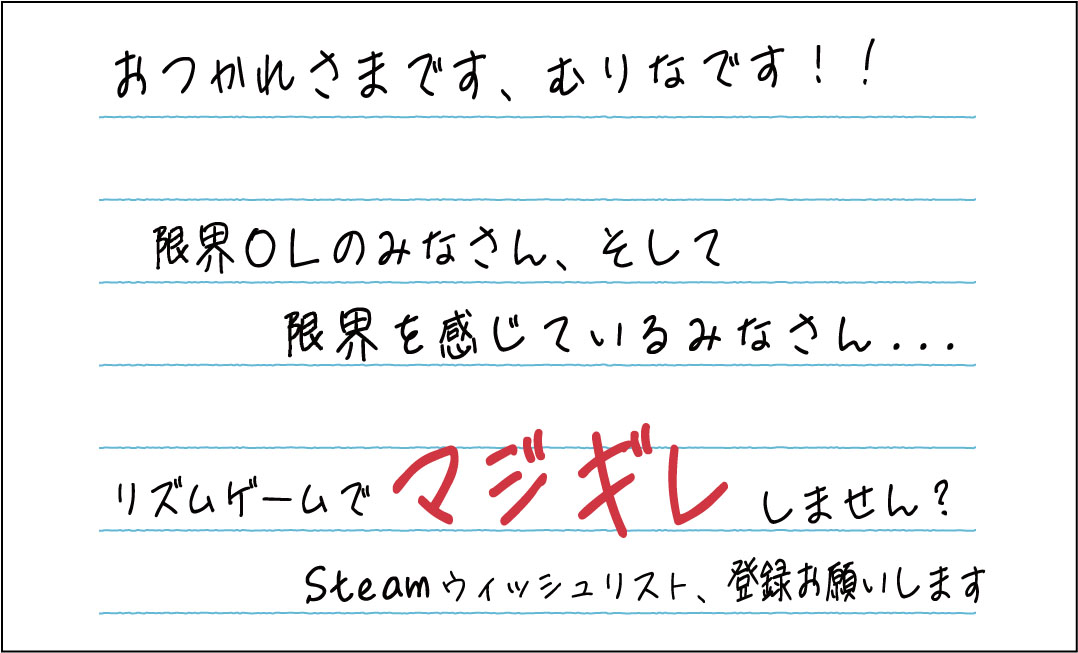 おつかれさまです、むりなです！！
限界OLのみなさん、そして
限界を感じているみなさん...
リズムゲームでマジギレしません？
Steamウィッシュリスト、登録お願いします